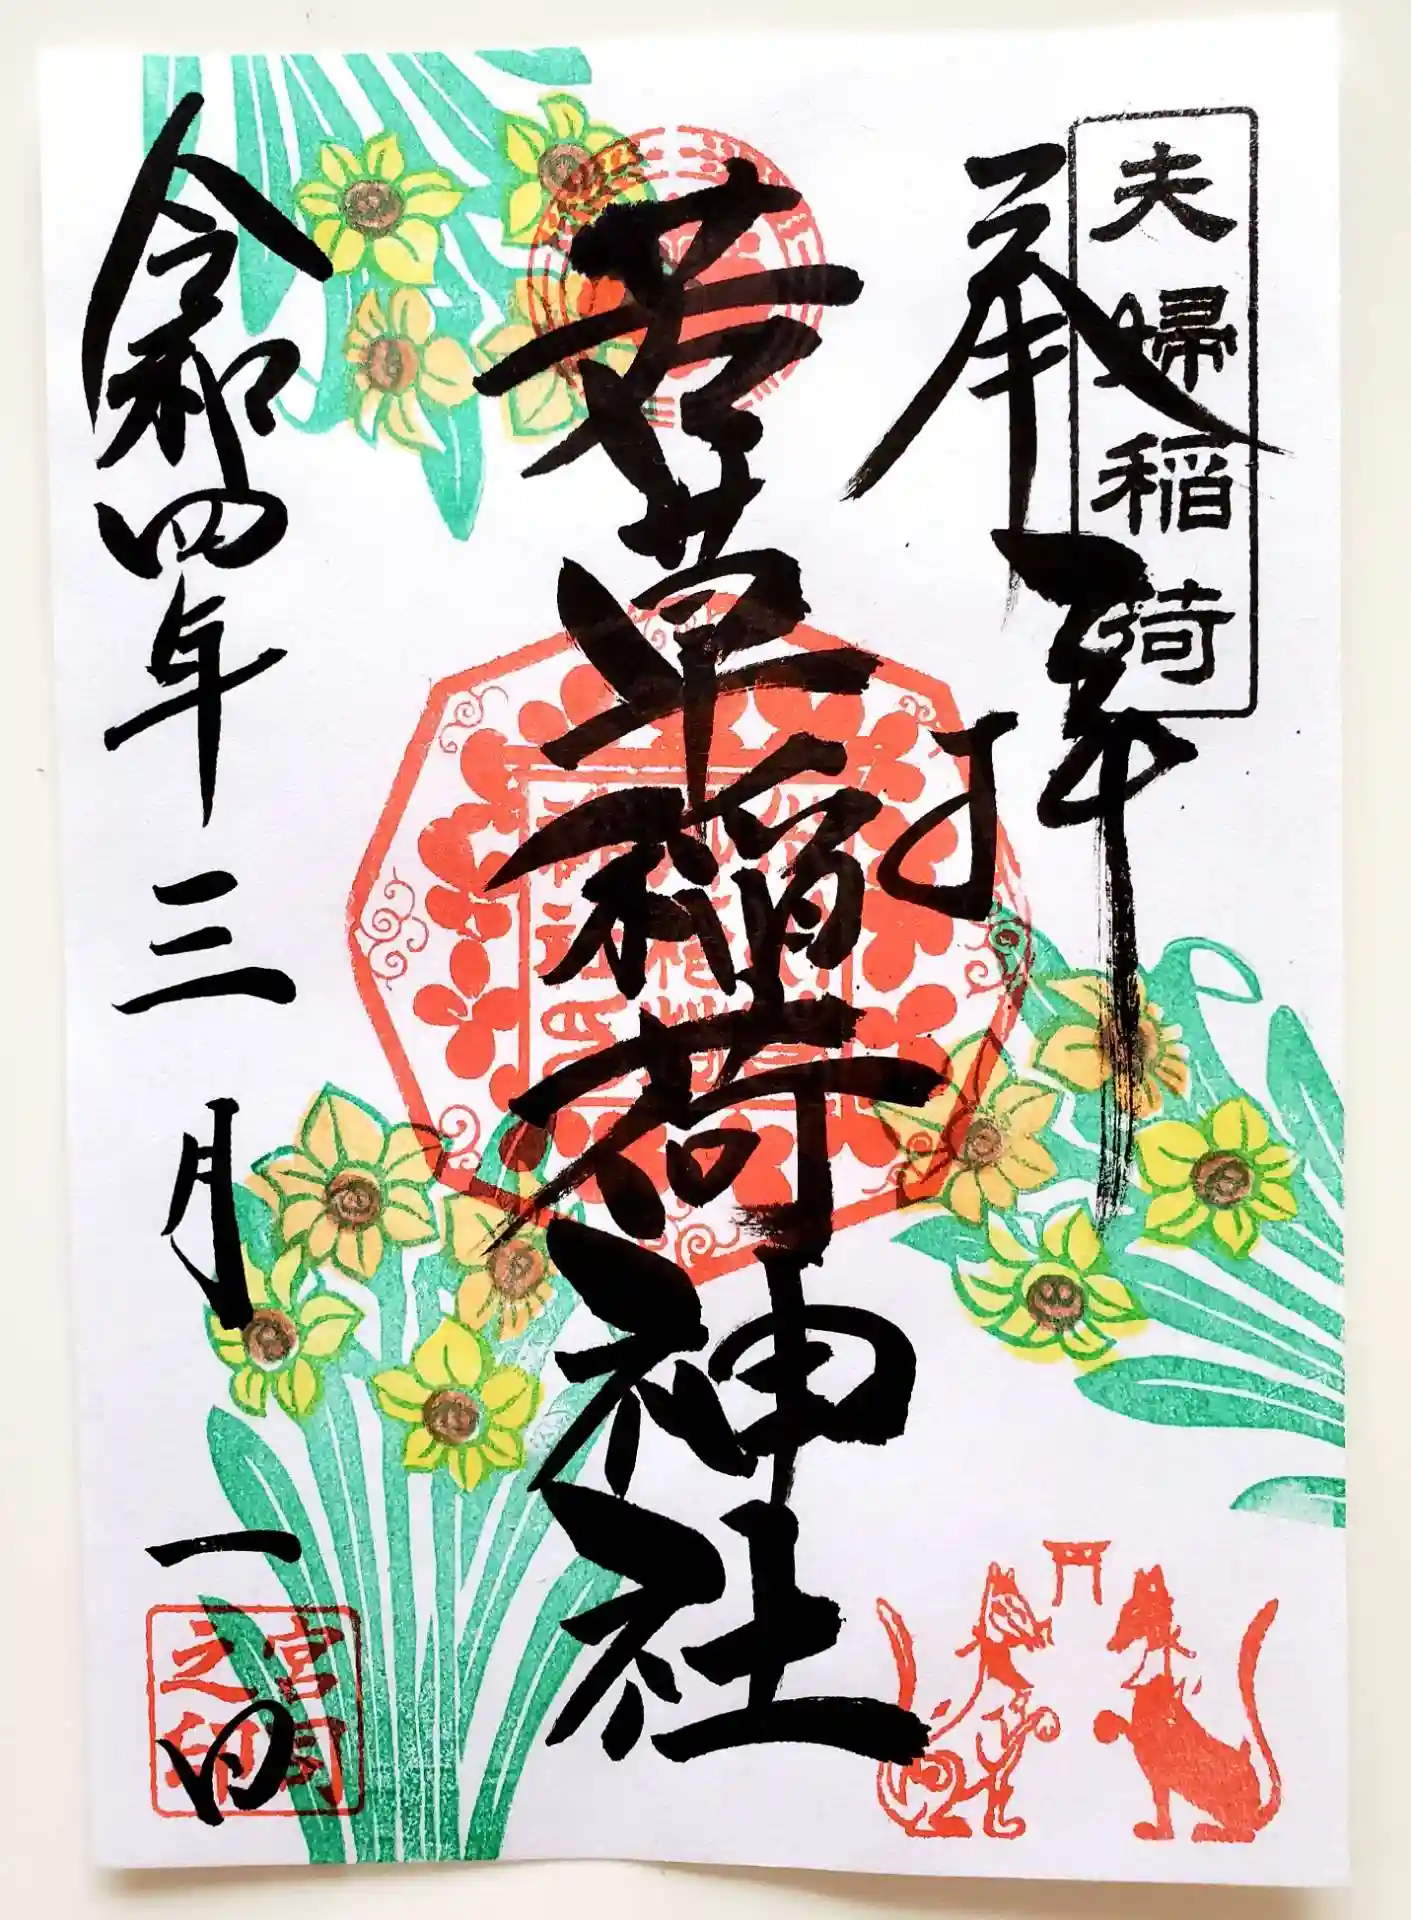 夫婦稲荷
承拝
若草稲荷神社
令和四年三月一日
宮司
之印